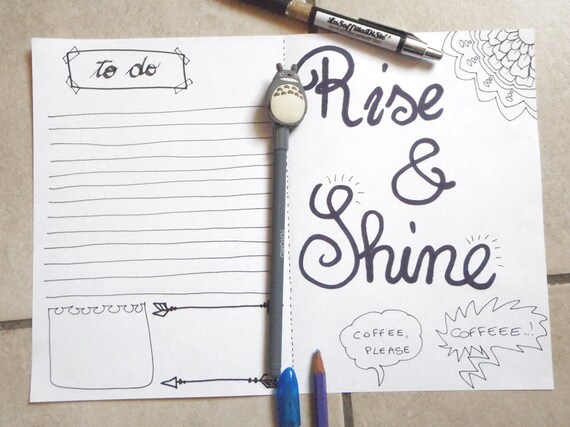 to do
"LaSoffittaDiSte"
Rise
&
Shine
COFFEE,
PLEASE
COFFEEE..!